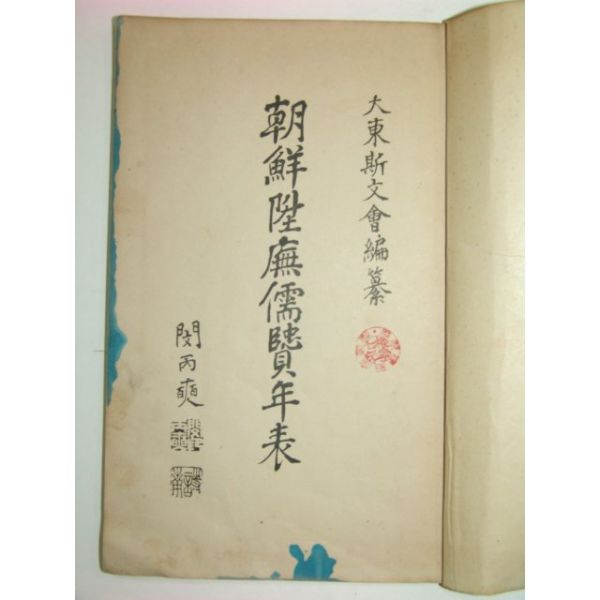 大東斯文會編纂
朝鮮陞廡儒賢年表
閔丙奭